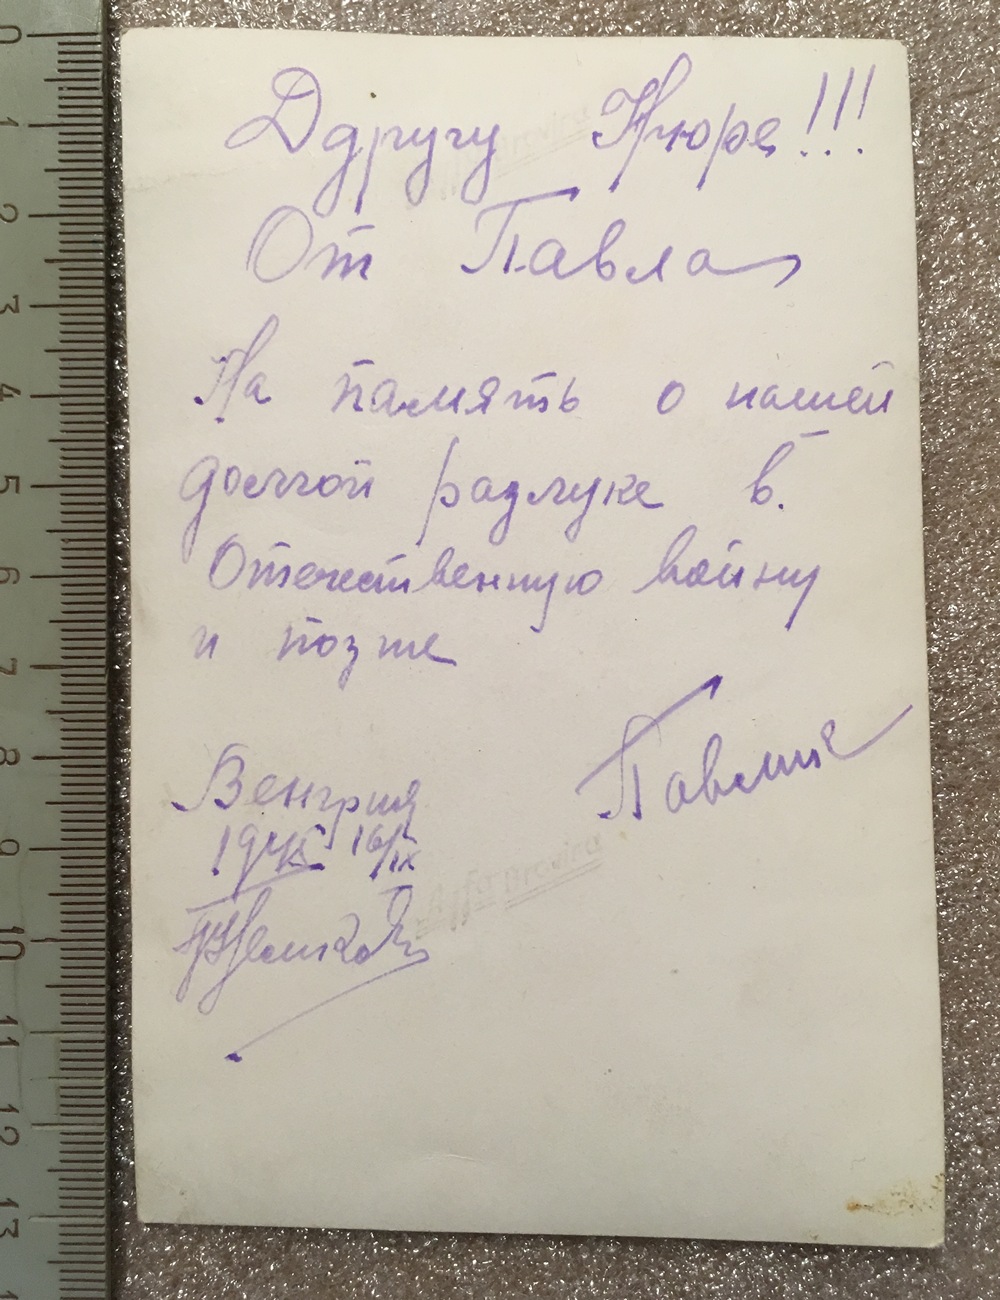 Ддругу Нюре!!!
От Павла
На память о нашей
долгой разлуке в.
Отечественную войну
и позже
Венгрия
1945 16/IX
Agfa Brovira
0 1 2 3 4 5 6 7 8 9 10 11 12 13